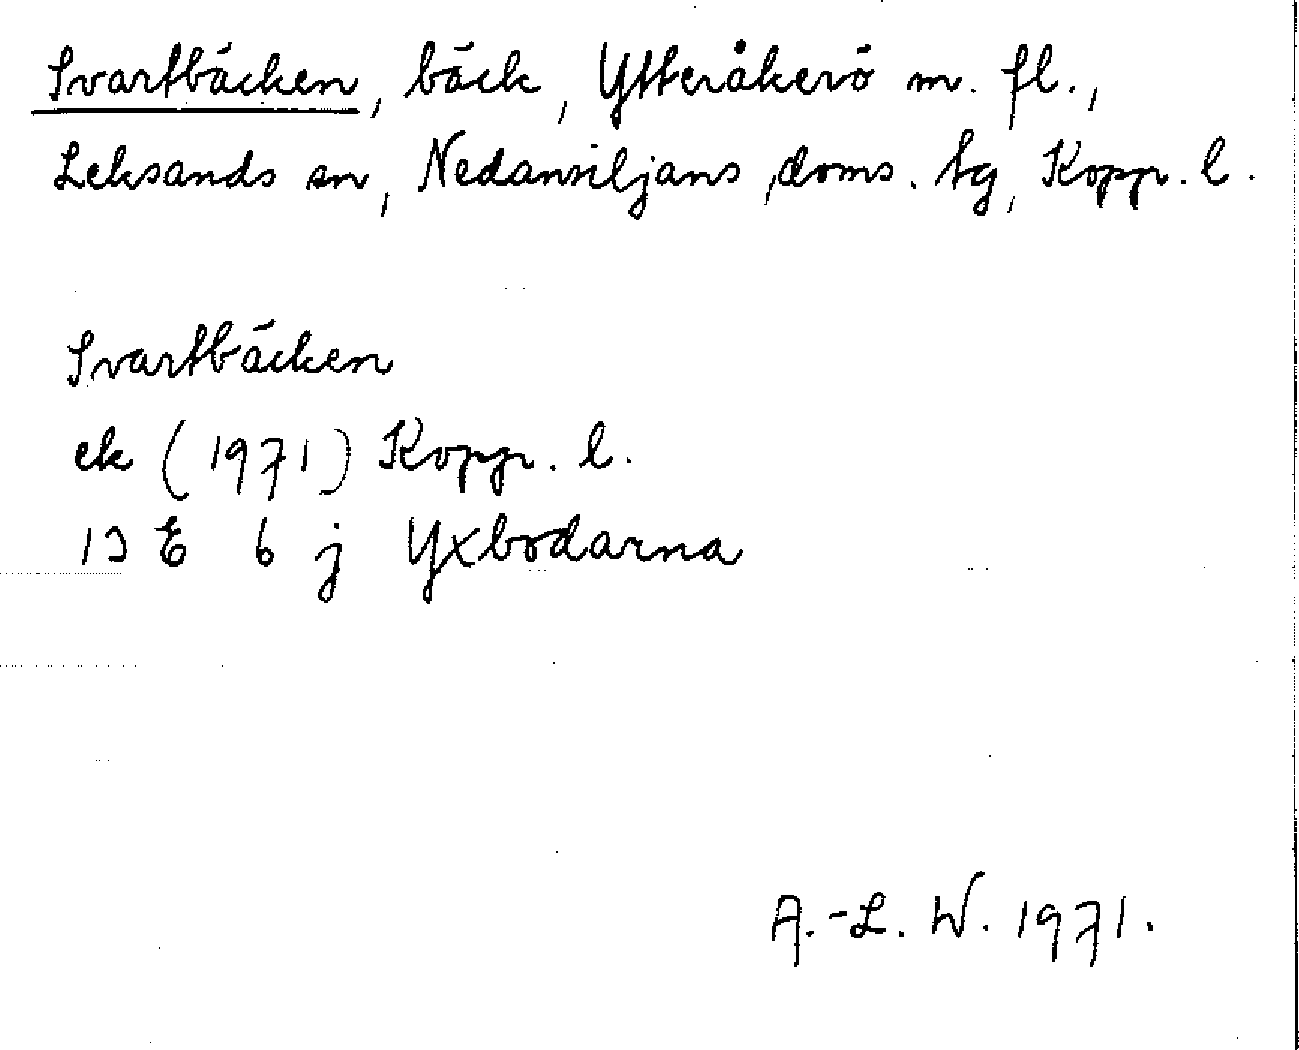 Svartbäcken, bäck, Ytteråkerö m. fl.,
Leksands sn, Nedansiljans doms. tg, Kopp. l.
Svartbäcken
ek (1971) Kopp. l.
13 E 6 j Yxbodarna
A.-L. W. 1971.